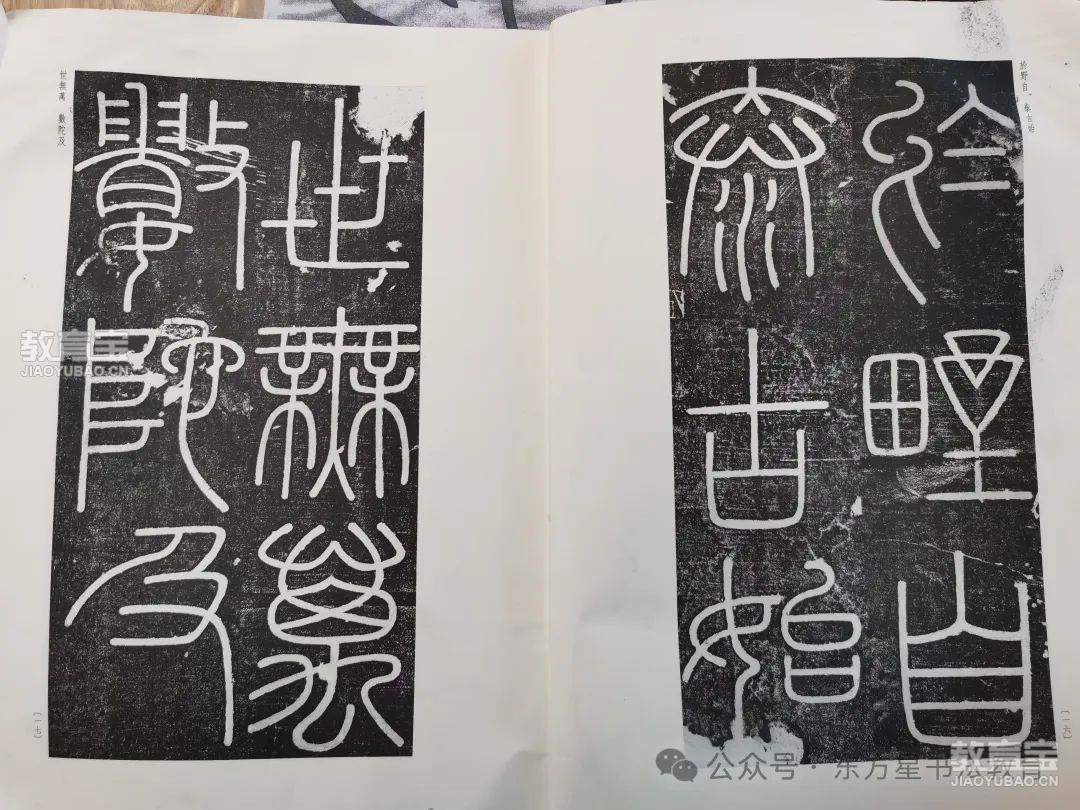 於野自
泰古始
世無萬
數陀及
於野自 泰古始
世無萬 數陀及
〔一六〕
〔一七〕
教育宝
JIAOYUBAO.CN
公众号·东方星书法教育
教育宝
JIAOYUBAO.CN